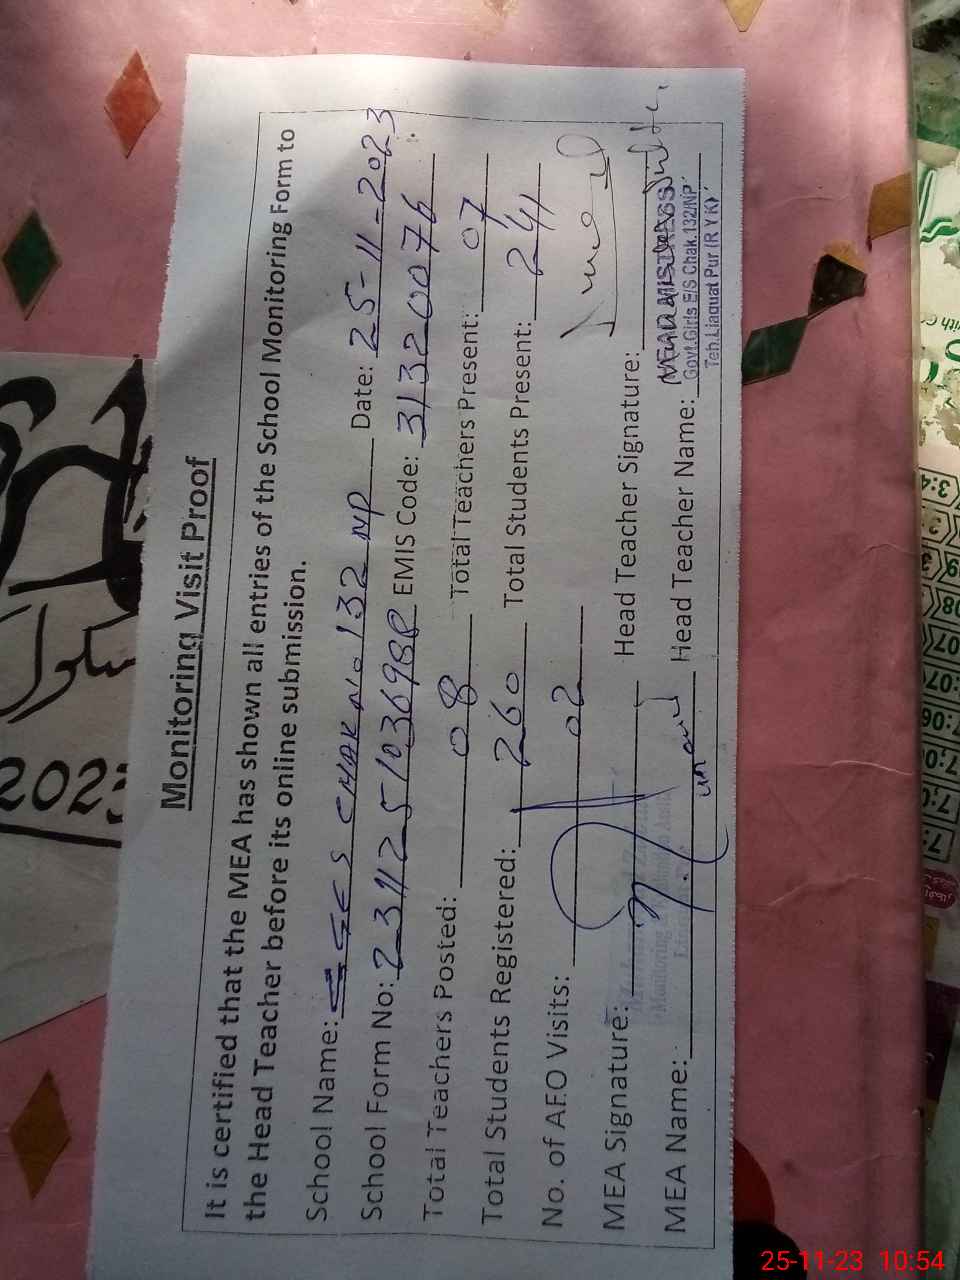 Monitoring Visit Proof
It is certified that the MEA has shown all entries of the School Monitoring Form to
the Head Teacher before its online submission.
School Name: GGES CHAK No 132 NP Date: 25-11-2023
School Form No: 231125103698 EMIS Code: 31320076
Total Teachers Posted: 08 Total Teachers Present: 07
Total Students Registered: 260 Total Students Present: 241
No. of AEO Visits: 02
MEA Signature: Head Teacher Signature:
MEA Name: Head Teacher Name:
HEAD MISTRESS
Govt.Girls E/S Chak.132/NP
Teh.Liaquat Pur (R Y K)
2023
25-11-23 10:54